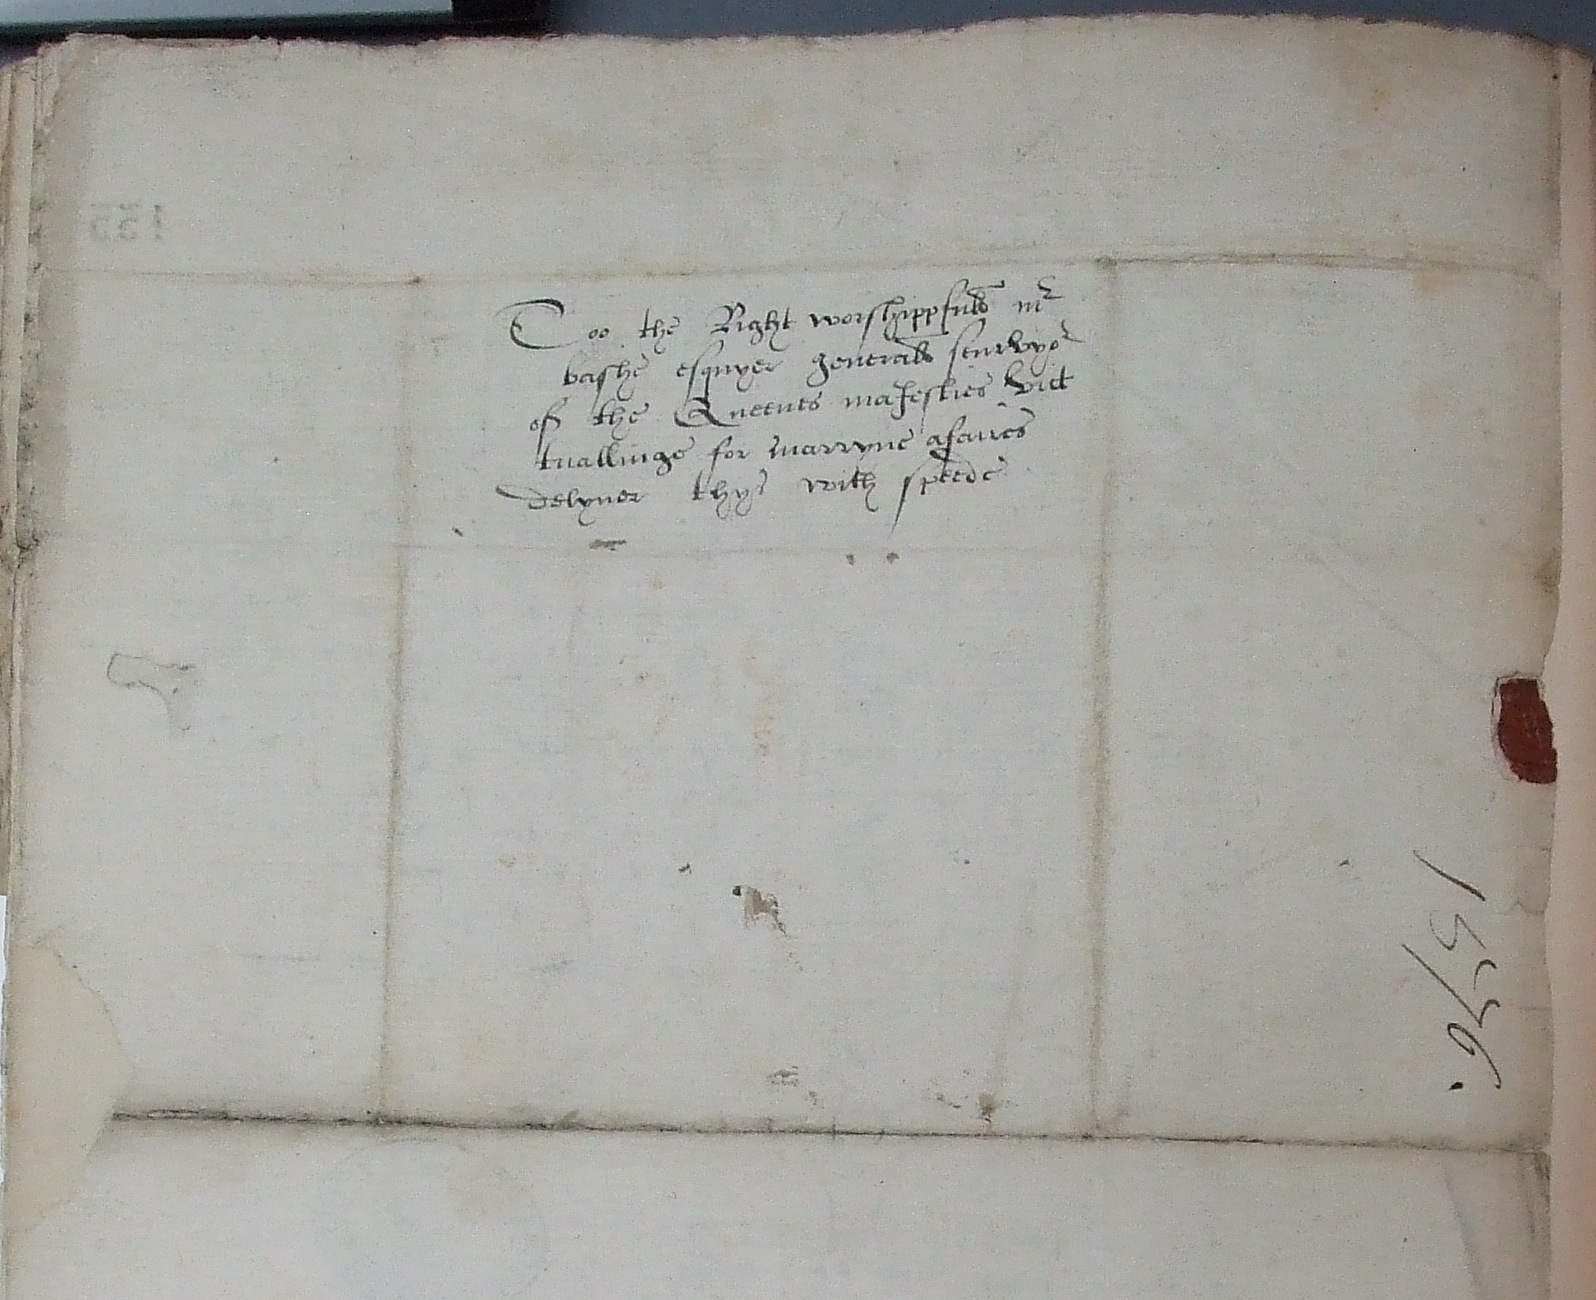 Too the Right worshippfull mr
bashe esquyer generall seurveyor
of the Queenes majesties vict
tuallinge for marryne afaires
delyuer thys with speede
1576.
155